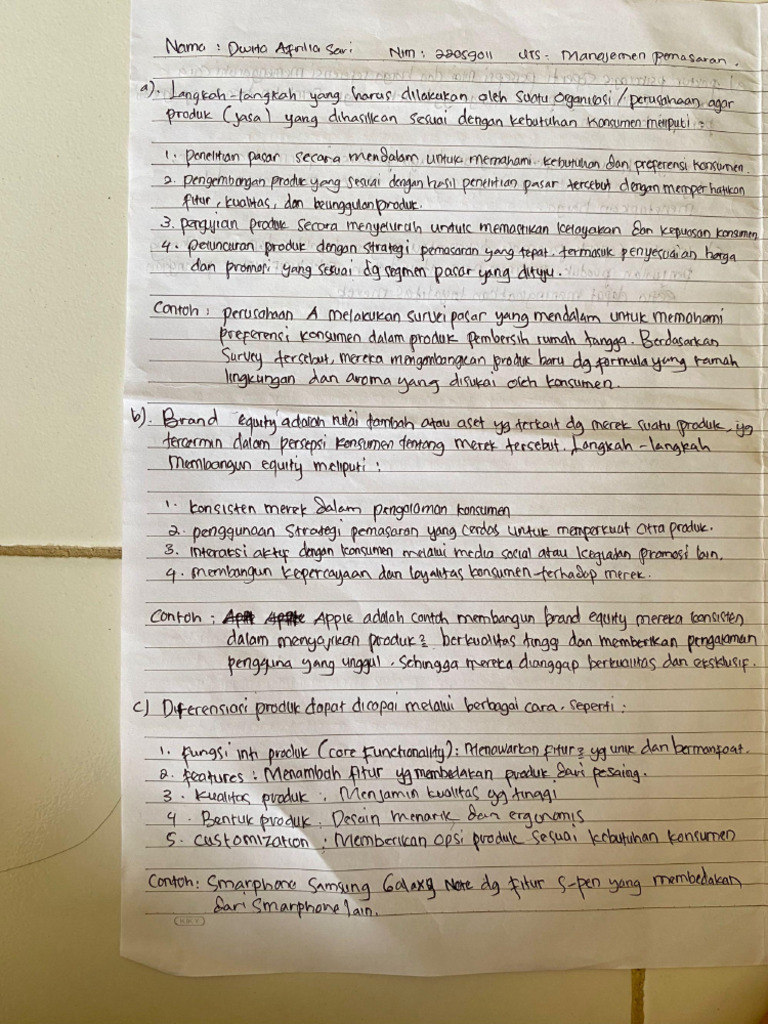 Nama : Dwita Aprilia Sari Nim : 22059011 UTS : Manajemen Pemasaran.
a). Langkah-langkah yang harus dilakukan oleh suatu organisasi/perusahaan agar
produk (jasa) yang dihasilkan sesuai dengan kebutuhan konsumen meliputi :
1. penelitian pasar secara mendalam untuk memahami kebutuhan dan preferensi konsumen.
2. pengembangan produk yang sesuai dengan hasil penelitian pasar tersebut dengan memperhatikan
fitur, kualitas, dan keunggulan produk.
3. pengujian produk secara menyeluruh untuk memastikan kelayakan dan kepuasan konsumen
4. peluncuran produk dengan strategi pemasaran yang tepat. termasuk penyesuaian harga
dan promosi yang sesuai dg segmen pasar yang dituju.
Contoh : perusahaan A melakukan survei pasar yang mendalam untuk memahami
preferensi konsumen dalam produk pembersih rumah tangga. Berdasarkan
Survey tersebut, mereka mengembangkan produk baru dg formula yang ramah
lingkungan dan aroma yang disukai oleh konsumen.
b). Brand equity adalah nilai tambah atau aset yg terkait dg merek suatu produk, yg
tercermin dalam persepsi konsumen tentang merek tersebut. Langkah-langkah
Membangun equity meliputi :
1. konsisten merek dalam pengalaman konsumen
2. penggunaan strategi pemasaran yang cerdas untuk memperkuat citra produk.
3. Interaksi aktif dengan konsumen melalui media social atau kegiatan promosi lain.
4. membangun kepercayaan dan loyalitas konsumen terhadap merek.
Contoh : Apple adalah contoh membangun brand equity mereka konsisten
dalam menyajikan produk2 berkualitas tinggi dan memberikan pengalaman
pengguna yang unggul. Sehingga mereka dianggap berkualitas dan eksklusif.
c) Diferensiasi produk dapat dicapai melalui berbagai cara. seperti :
1. Fungsi inti produk (core Functionality) : Menawarkan fitur2 yg unik dan bermanfaat.
2. Features : Menambah fitur yg membedakan produk dari pesaing.
3. Kualitas produk : Menjamin kualitas yg tinggi
4. Bentuk produk : Desain menarik dan ergonomis
5. Customization : Memberikan opsi produk sesuai kebutuhan konsumen
Contoh : Smarphone Samsung Galaxy Note dg fitur S-pen yang membedakan
dari Smarphone lain.